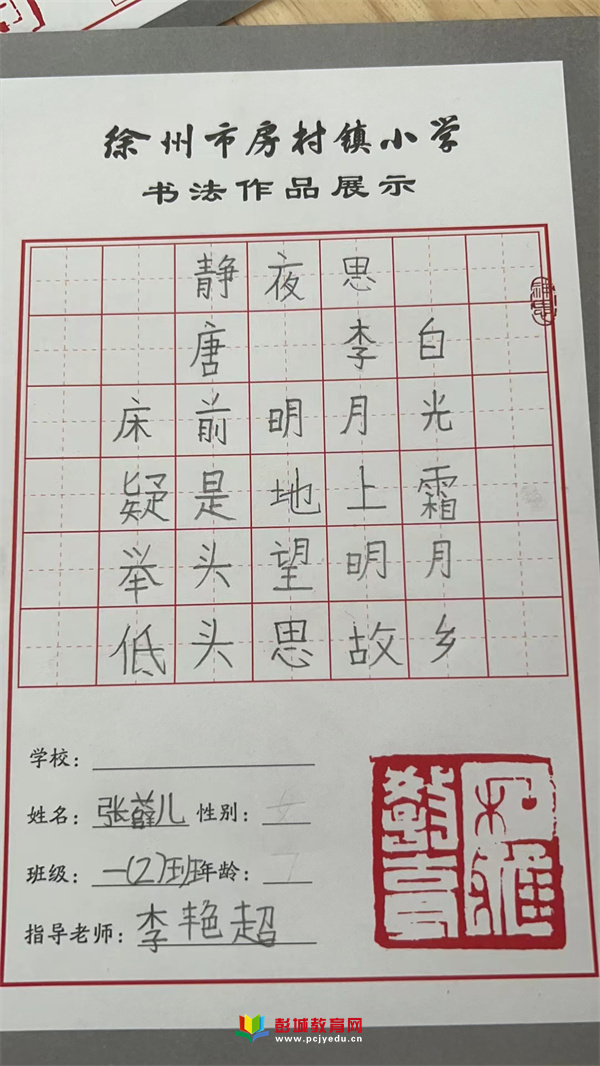 徐州市房村镇小学
书法作品展示
静夜思
唐 李白
床前明月光
疑是地上霜
举头望明月
低头思故乡
学校：
姓名：张薛儿 性别：女
班级：一(2)班 年龄：7
指导老师：李艳超
彭城教育网
www.pcjyedu.cn